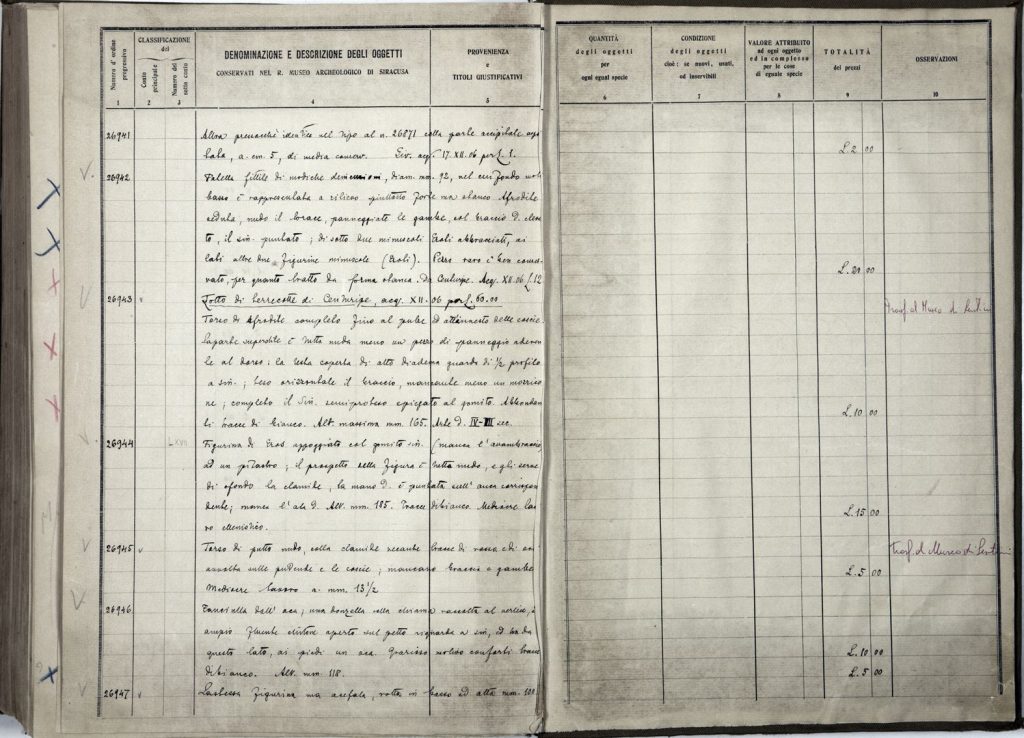 Numero d'ordine progressivo
CLASSIFICAZIONE del
Conto principale
Numero del sotto conto
DENOMINAZIONE E DESCRIZIONE DEGLI OGGETTI
CONSERVATI NEL R. MUSEO ARCHEOLOGICO DI SIRACUSA
PROVENIENZA
e
TITOLI GIUSTIFICATIVI
QUANTITÀ
degli oggetti
per
ogni egual specie
CONDIZIONE
degli oggetti
cioè: se nuovi, usati,
od inservibili
VALORE ATTRIBUITO
ad ogni oggetto
ed in complesso
per le cose
di eguale specie
TOTALITÀ
dei prezzi
OSSERVAZIONI
1 2 3 4 5 6 7 8 9 10
26941 Altra pressochè identica nel tipo al n. 26871 colla parte
a. cm. 5, di media 17. XII. 06 per £. 1. L. 2 00
26942 fittile di modiche diam. mm. 92, nel cui fondo
basso è rappresentata a rilievo piuttosto forte ma stanco Afrodite
seduta, nudo il torace, panneggiate le gambe, col braccio d.
to, il sin. puntato; di sotto due minuscoli Eroti abbracciati, ai
lati altre due figurine minuscole (Eroti). Pezzo raro e ben conser-
vato, per quanto tratto da forma stanca. Da Centuripe. Acq. XII. 06 £. 12 L. 20 00
26943 v Lotto di terrecotte di Centuripe, acq. XII - 06 per £. 60.00
Torso di Afrodite completo fino al pube ed attaccato delle coscie.
La parte superstite è tutta nuda meno un pezzo di panneggio aderen-
te al dorso: la testa coperta di alto diadema guarda di 1/2 profilo
a sin.; teso orizzontale il braccio, mancante meno un moncone
ne; completo il sin. semiproteso e piegato al gomito. Abbondan-
ti tracce di bianco. Alt. massima mm. 165. Arte d. IV-III sec. L. 10 00
26944 Figurina di Eros appoggiato col gomito sin. (manca l'avambraccio)
ad un pilastro; il prospetto della figura è tutto nudo, e gli serve
di sfondo la clamide, la mano d. è puntata sull'anca corrispon-
dente; manca l'ala d. Alt. mm. 185. Tracce di bianco. Mediocre lavo-
ro ellenistico. L. 15 00
26945 v Torso di putto nudo, colla clamide recante tracce di rosa
avvolta sulle pudende e le coscie; mancano braccia e gambe
Mediocre lavoro a. mm. 13 1/2 L. 5 00
26946 Fanciulla dall'oca; una donzella colla chioma raccolta al vertice,
ampio fluente chitone aperto sul petto riguarda a sin., ed ha da
questo lato, ai piedi un oca. Grazioso motivo con forti tracce
di bianco. Alt. mm. 118. L. 10 00
26947 v La stessa figurina ma acefala, rotta in basso ed alta mm. 100 L. 5 00
Trasf. al Museo di Lentini
Trasf. al Museo di Lentini